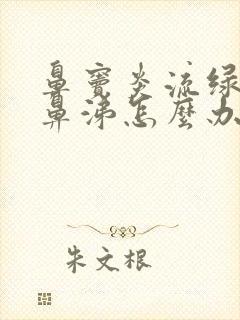 鼻窦炎流绿
鼻涕怎麼办
朱文根